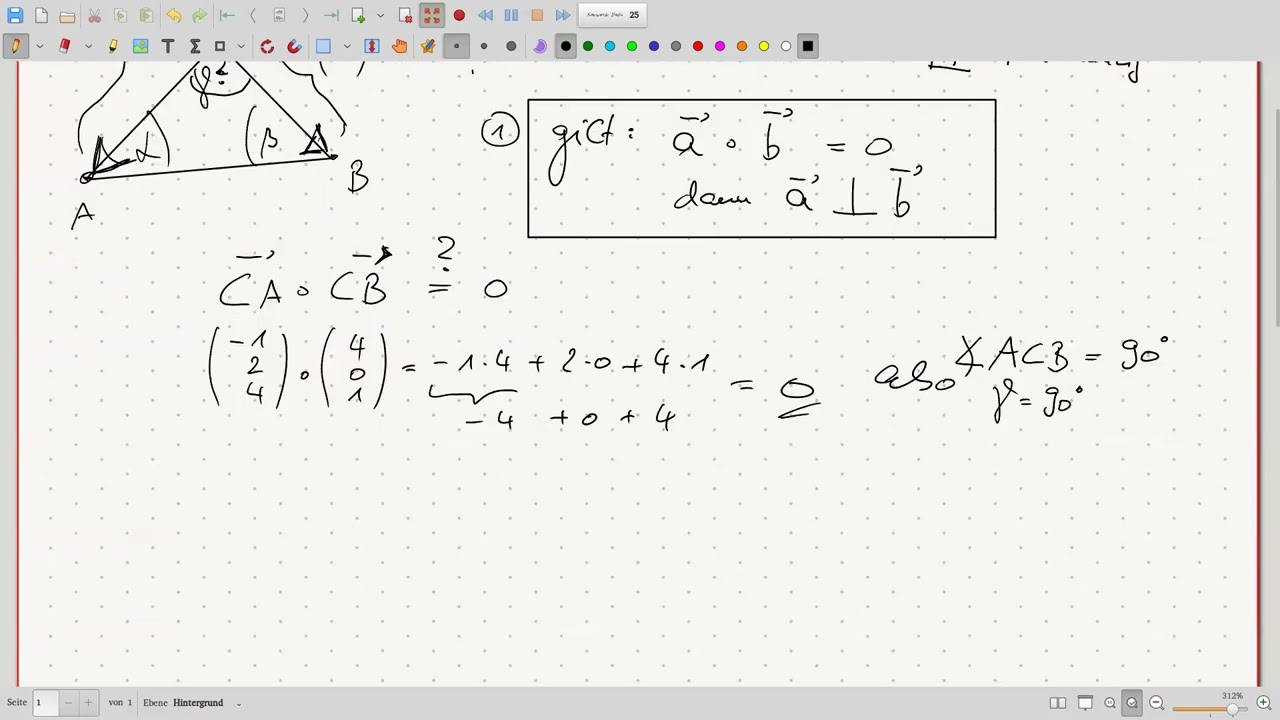 25
γ ?
α
β
A
B
① gilt: a⃗ ∘ b⃗ = 0
dann a⃗ ⊥ b⃗
CA⃗ ∘ CB⃗ ≟ 0
(-1 2 4) ∘ (4 0 1) = -1·4 + 2·0 + 4·1 = 0
-4 + 0 + 4
also ∡ACB = 90°
γ = 90°
Seite 1 von 1 Ebene Hintergrund
312%